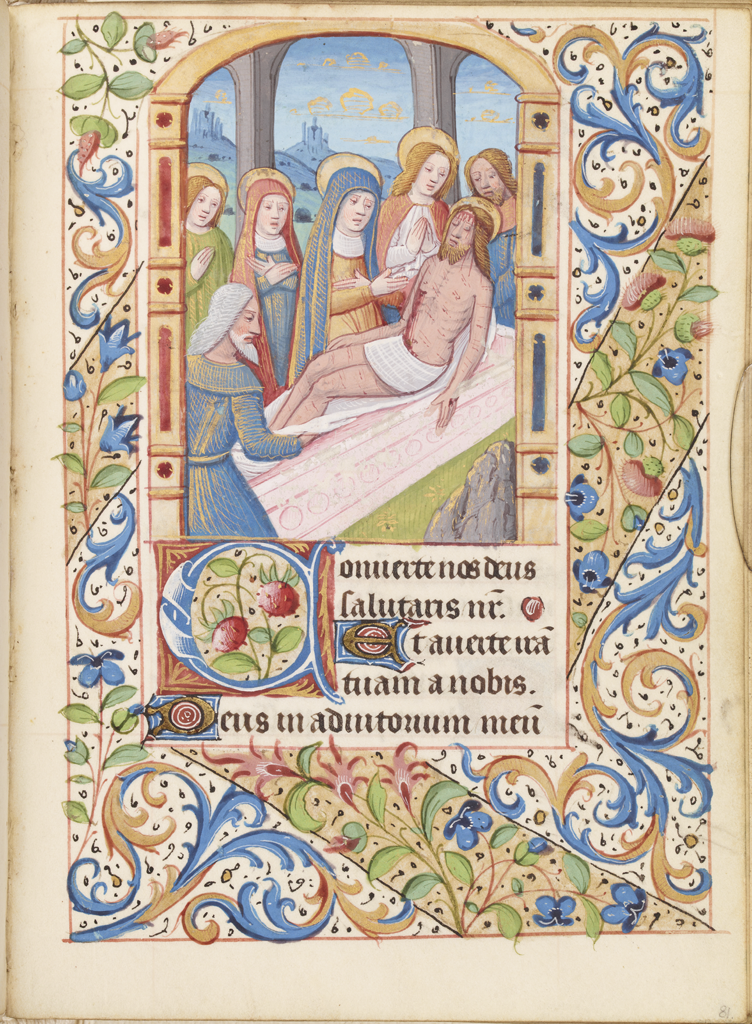 Conuerte nos deus
salutaris nr̄.
Et auerte irā
tuam a nobis.
Deus in adiutorium meū
81